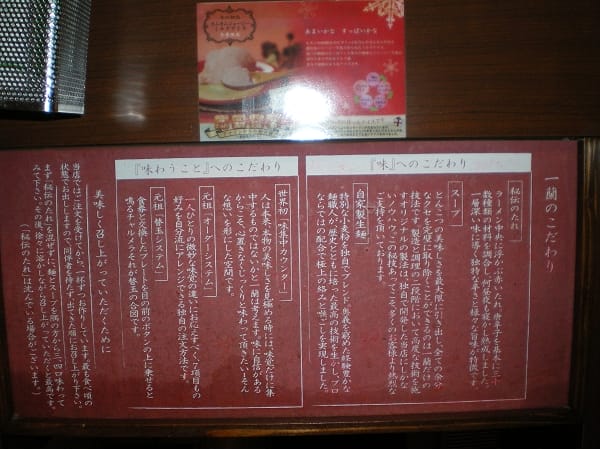 あまいかな すっぱいかな
一蘭のこだわり
『味』へのこだわり
秘伝のたれ
ラーメン中央に浮かぶ赤いたれ。唐辛子を基本に三十
数種類の材料を調合し、何昼夜も寝かし熟成しました。
一層深い味に導く、独特な辛さと様々な旨味が特徴です。
スープ
とんこつの美味しさを最大限に引き出し、全ての余分
なクセを完璧に取り除くことができるのは一蘭だけの
技法です。製造と調理の二段階において高度な技術を施
すオリジナルの製法は、独自で開発した当店にしかな
いノウハウ。この秘技あってこそ、多くのお客様より熱烈な
ご支持を頂いております。
自家製生麺
特別な小麦粉を独自でブレンド。奥義を極めた経験豊かな
麺職人が、歴史とともに培った最高の技術を生かし、プロ
ならではの配合で極上の絡みと喉ごしを実現しました。
『味わうこと』へのこだわり
世界初「味集中カウンター」
人は本来、本物の美味しさを見極める時には、味覚だけに集
中するものではないかと一蘭は考えます。味に自信がある
からこそ、心置きなくじっくり味わって頂きたい…そん
な想いを形にした空間です。
元祖「オーダーシステム」
一人ひとりの微妙な味覚の違いにお応えすべく、七項目もの
好みを自分流にアレンジできる独自の注文方法です。
元祖「替玉システム」
食券と交換したプレートを目の前のボタンの上に乗せると
鳴るチャルメラそれが替玉の合図です。
美味しく召し上がっていただくために
当店では、ご注文を受けてから、一杯ずつお作りしています。最も食べ頃の
状態でお出ししますので、同伴者を待たず、出てきた順にお召し上がり下さい。
まず「秘伝のたれ」を混ぜずに、麺とスープを隅の方から三、四口味わって
みて下さい。その後、徐々に溶かしながら召し上がっていただくと最高です。
(「秘伝のたれ」は沈んでいる場合がございます。)